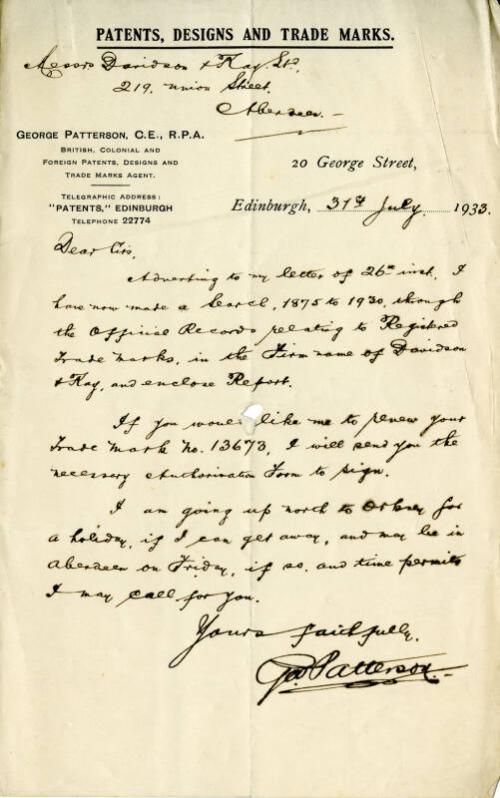 PATENTS, DESIGNS AND TRADE MARKS.
Messrs Davidson & Kay. Ltd.
219, Union Street.
Aberdeen. -
GEORGE PATTERSON, C.E., R.P.A.
BRITISH, COLONIAL AND
FOREIGN PATENTS, DESIGNS AND
TRADE MARKS AGENT.
TELEGRAPHIC ADDRESS:
"PATENTS," EDINBURGH
TELEPHONE 22774
20 George Street,
Edinburgh, 31st July. 1933.
Dear Sirs,
Adverting to my letter of 26th inst. I
have now made a Search, 1875 to 1930, through
the Official Records relating to Registered
Trade Marks, in the Firm name of Davidson
& Kay, and enclose Report.
If you would like me to renew your
Trade Mark No. 13673, I will send you the
necessary Authorisation Form to sign.
I am going up north to Orkney for
a holiday, if I can get away, and may be in
Aberdeen on Friday, if so, and time permits
I may call for you.
Yours faithfully.
Geo Patterson.